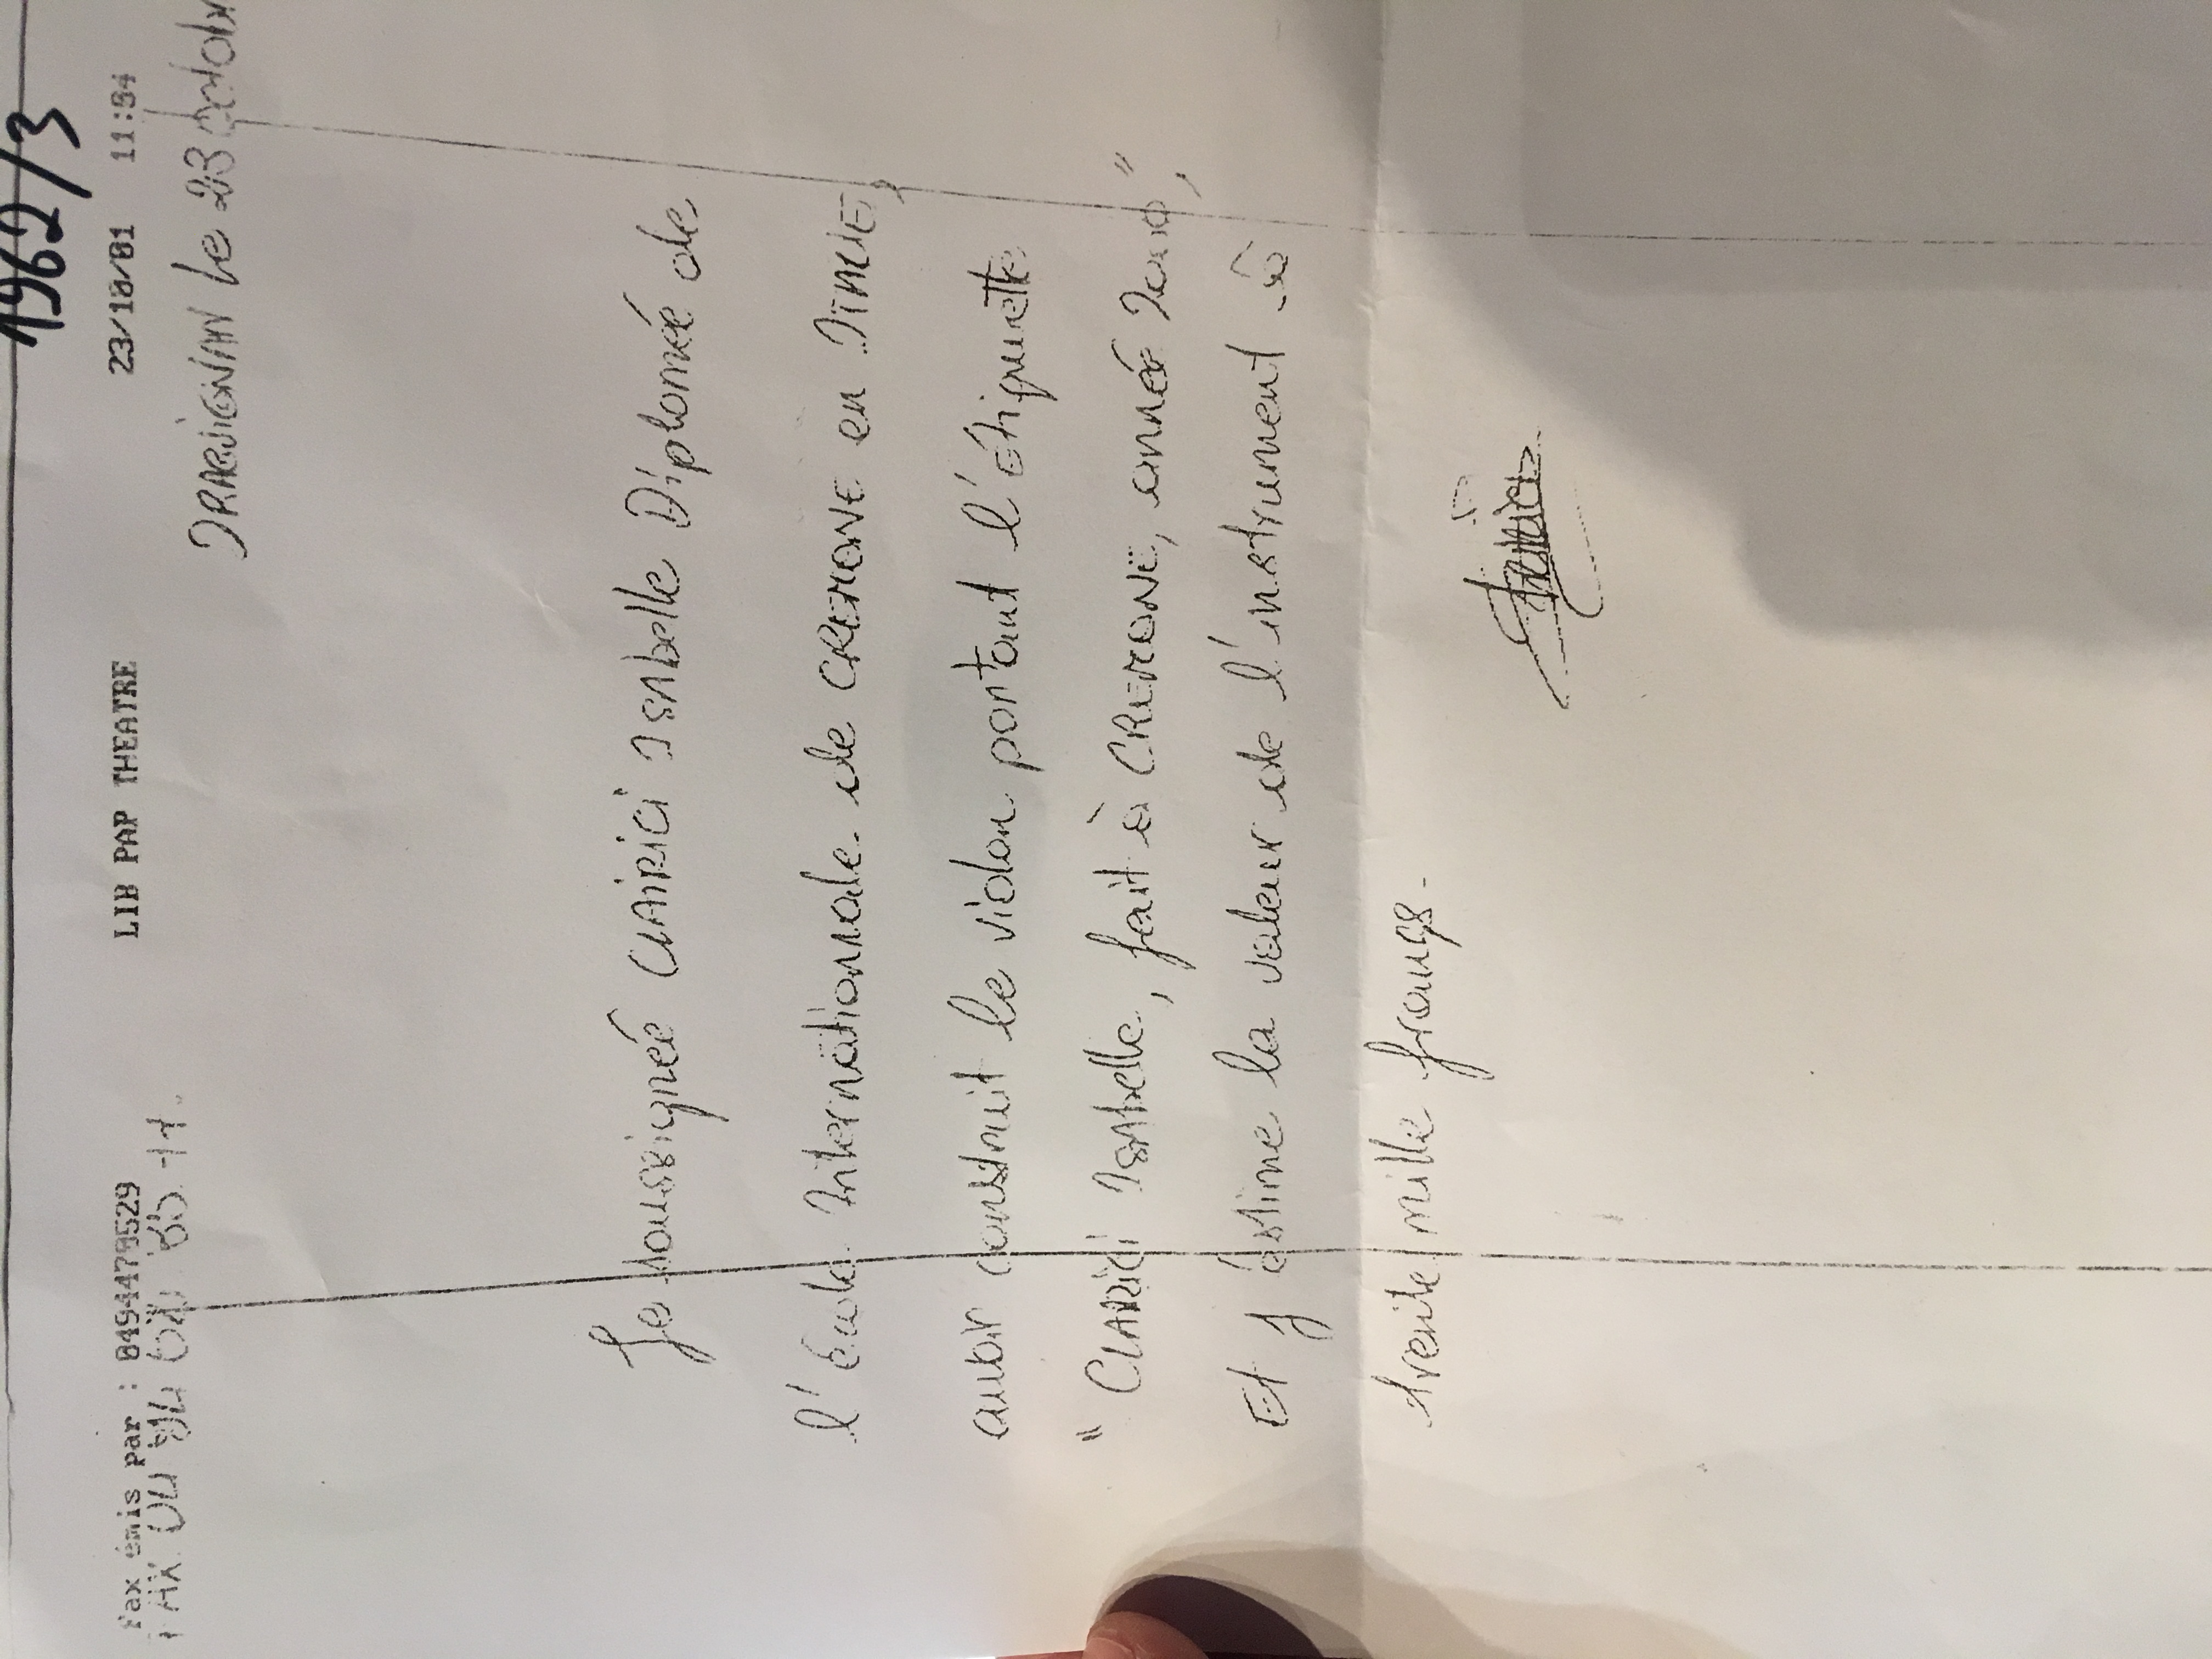 1962/3
Fax émis par : 0494479529 LIB PAP THEATRE 23/10/01 11:04
FAX 04 94 85
DRAGUIGNAN le 23
Je soussignée CLARICI ISABELLE Diplomée de
l'école Internationale de CREMONE en ITALIE,
avoir construit le violon portant l'étiquette
" CLARICI Isabelle, fait à CREMONE, année "
Et j estime la valeur de l'instrument à
trente mille francs.